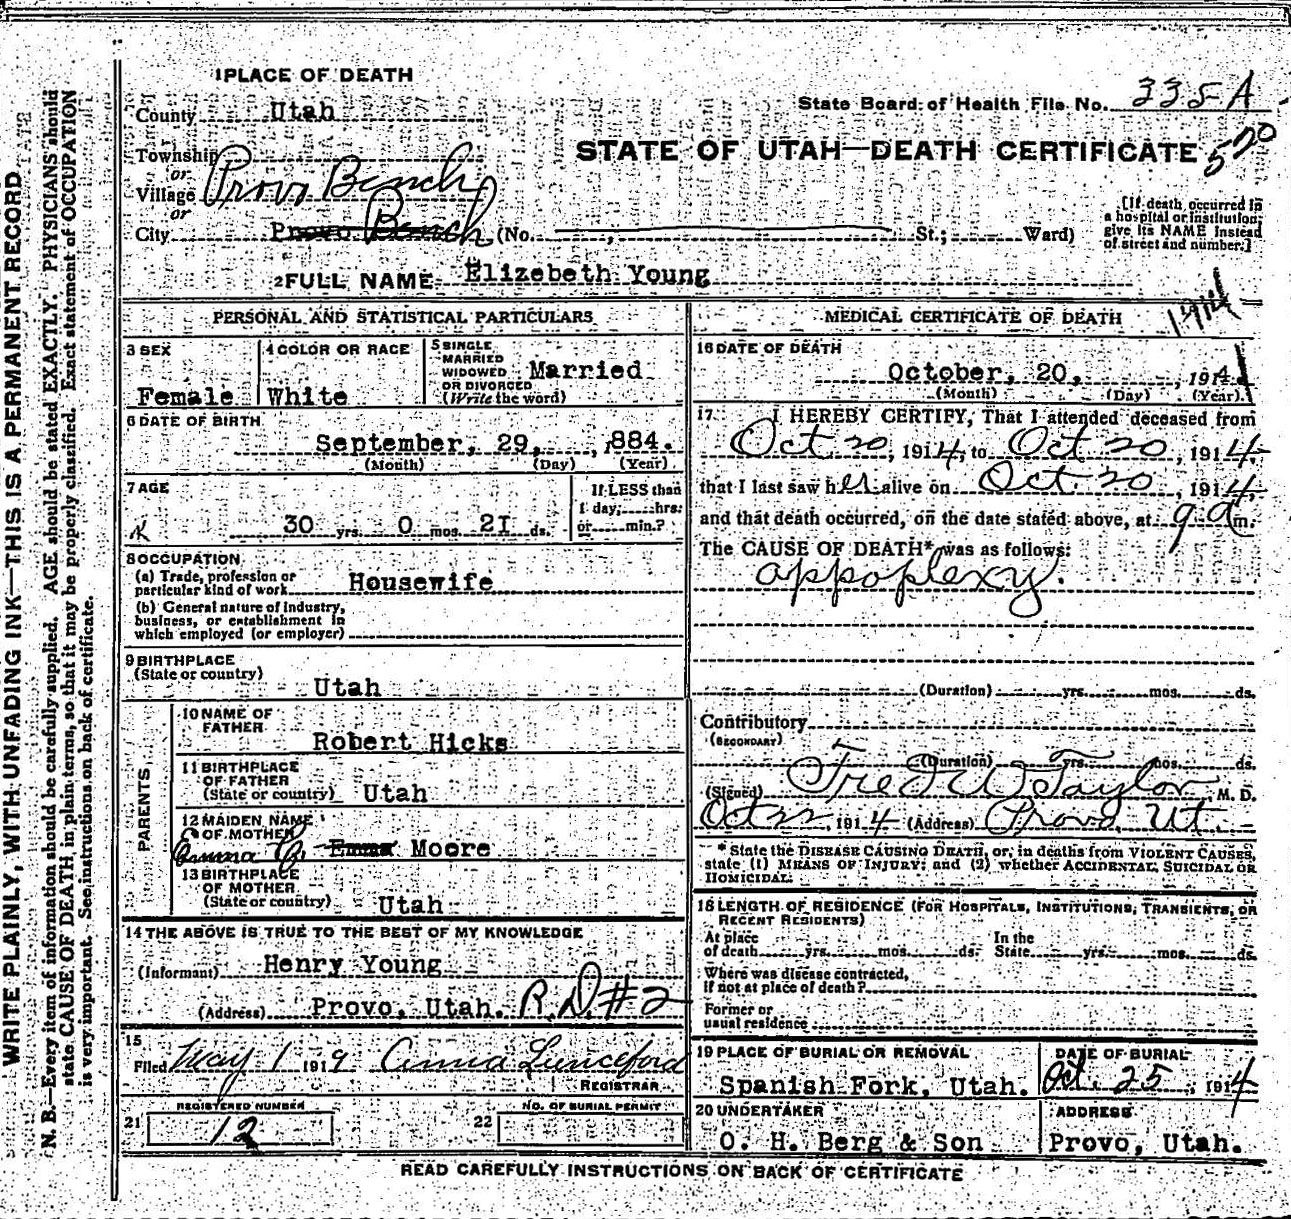 WRITE PLAINLY, WITH UNFADING INK—THIS IS A PERMANENT RECORD
N. B.—Every item of information should be carefully supplied. AGE should be stated EXACTLY. PHYSICIANS should
state CAUSE OF DEATH in plain terms, so that it may be properly classified. Exact statement of OCCUPATION
is very important. See instructions on back of certificate.
1 PLACE OF DEATH
County Utah
State Board of Health File No. 335 A
Township
or
Village Provo Bench
or
City Provo Bench (No. , St.; Ward)
STATE OF UTAH—DEATH CERTIFICATE
520
[If death occurred in
a hospital or institution,
give its NAME instead
of street and number.]
2 FULL NAME Elizebeth Young
1914
PERSONAL AND STATISTICAL PARTICULARS
3 SEX
Female
4 COLOR OR RACE
White
5 SINGLE
MARRIED
WIDOWED
OR DIVORCED
(Write the word)
Married
6 DATE OF BIRTH
September, 29, , 1884.
(Month) (Day) (Year)
7 AGE
30 yrs. 0 mos. 21 ds.
If LESS than
1 day, hrs.
or min.?
8 OCCUPATION
(a) Trade, profession or
particular kind of work Housewife
(b) General nature of industry,
business, or establishment in
which employed (or employer)
9 BIRTHPLACE
(State or country)
Utah
PARENTS
10 NAME OF
FATHER
Robert Hicks
11 BIRTHPLACE
OF FATHER
(State or country) Utah
12 MAIDEN NAME
OF MOTHER
Emma Emma Moore
13 BIRTHPLACE
OF MOTHER
(State or country) Utah
14 THE ABOVE IS TRUE TO THE BEST OF MY KNOWLEDGE
(Informant) Henry Young
(Address) Provo, Utah. R.D. #2
15
Filed May 1 1919 Anna Lunceford
REGISTRAR
REGISTERED NUMBER
21 12
NO. OF BURIAL PERMIT
22
MEDICAL CERTIFICATE OF DEATH
16 DATE OF DEATH
October, 20, , 1914
(Month) (Day) (Year)
17 I HEREBY CERTIFY, That I attended deceased from
Oct 20, 1914, to Oct 20, 1914.
that I last saw her alive on Oct. 20, 1914,
and that death occurred, on the date stated above, at 9 a m.
The CAUSE OF DEATH* was as follows:
appoplexy.
(Duration) yrs. mos. ds.
Contributory
(SECONDARY)
(Duration) yrs. mos. ds.
(Signed) Fred W Taylor, M. D.
Oct 22, 1914 (Address) Provo, Ut.
* State the DISEASE CAUSING DEATH, or, in deaths from VIOLENT CAUSES,
state (1) MEANS OF INJURY; and (2) whether ACCIDENTAL, SUICIDAL OR
HOMICIDAL.
18 LENGTH OF RESIDENCE (FOR HOSPITALS, INSTITUTIONS, TRANSIENTS, OR
RECENT RESIDENTS)
At place
of death yrs. mos. ds.
In the
State yrs. mos. ds.
Where was disease contracted,
if not at place of death?
Former or
usual residence
19 PLACE OF BURIAL OR REMOVAL
Spanish Fork, Utah.
DATE OF BURIAL
Oct. 25, 1914
20 UNDERTAKER
O. H. Berg & Son
ADDRESS
Provo, Utah.
READ CAREFULLY INSTRUCTIONS ON BACK OF CERTIFICATE